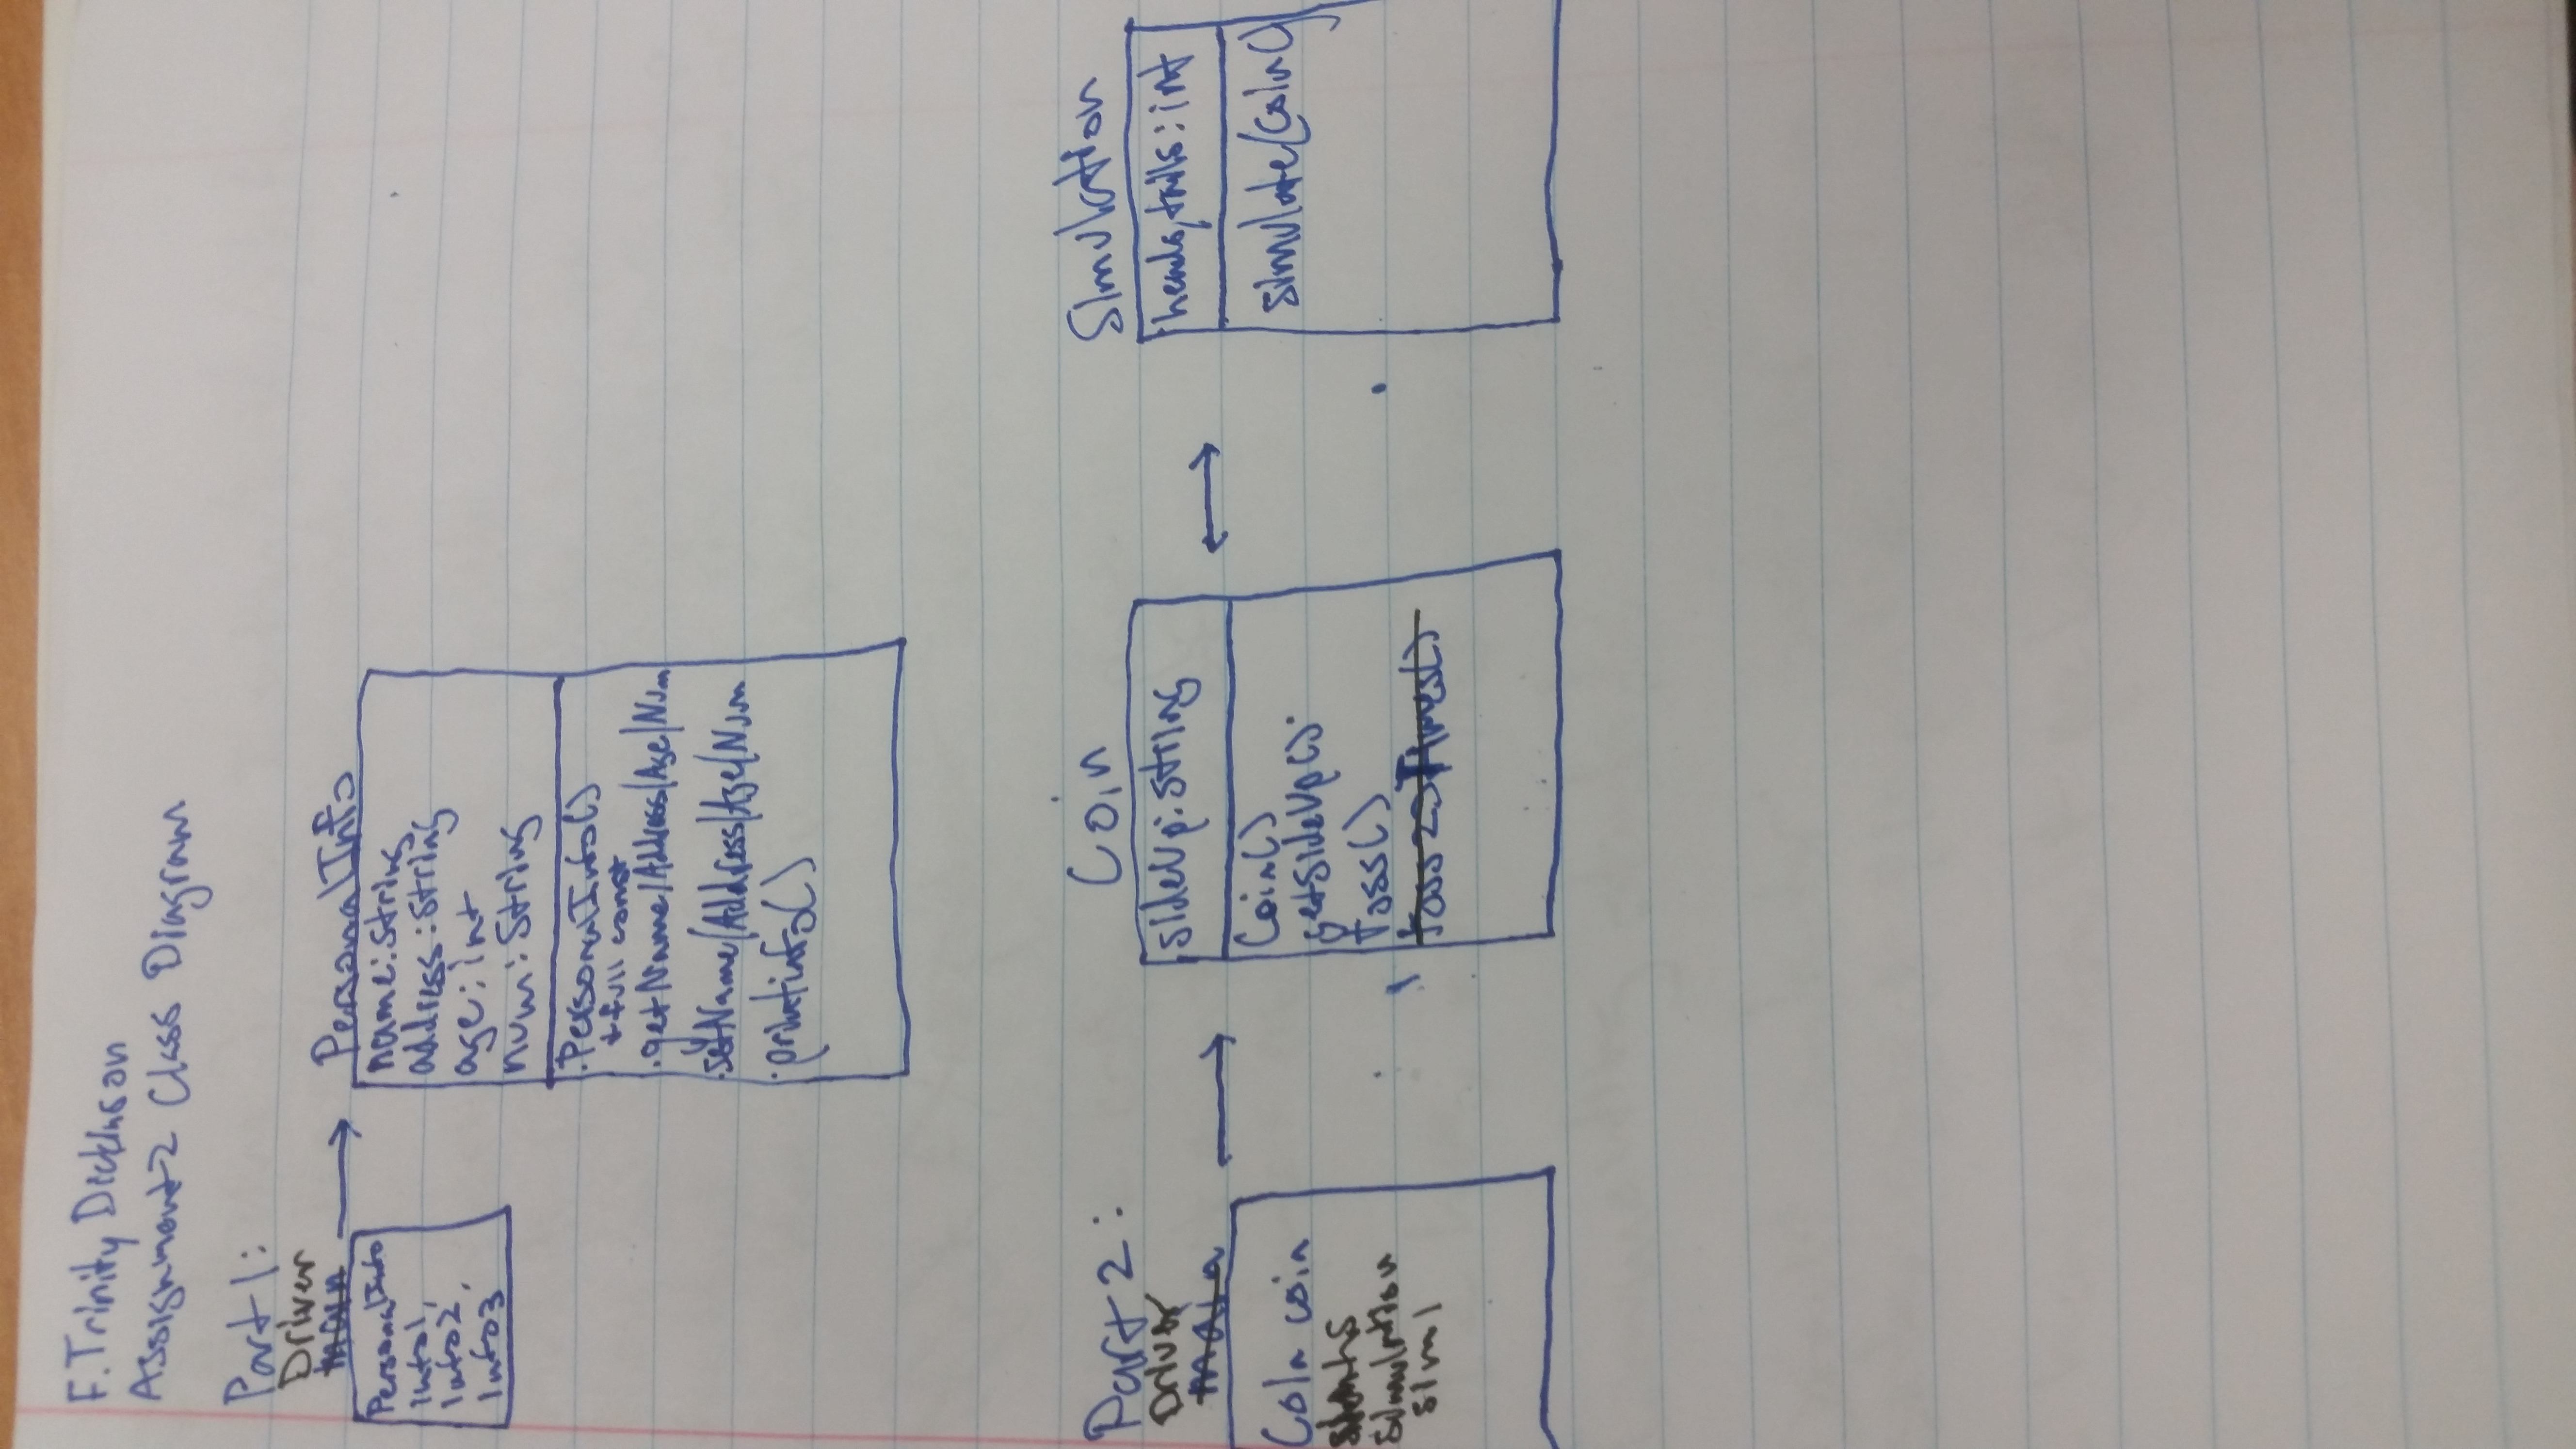 F. Trinity Dickinson
Assignment 2 Class Diagram
Part 1:
Driver
main
PersonalInfo
info1,
info2,
info3
PersonalInfo
name: String
address: String
age: int
num: String
.PersonalInfo()
+ full const
.getName/Address/Age/Num
.setName/Address/Age/Num
.printinfo()
Part 2:
Driver
main
Coin coin
simulation
sim1
Coin
sideUp: String
Coin()
getSideUp()
toss()
toss20Times()
Simulation
heads, tails: int
simulate(Coin C)